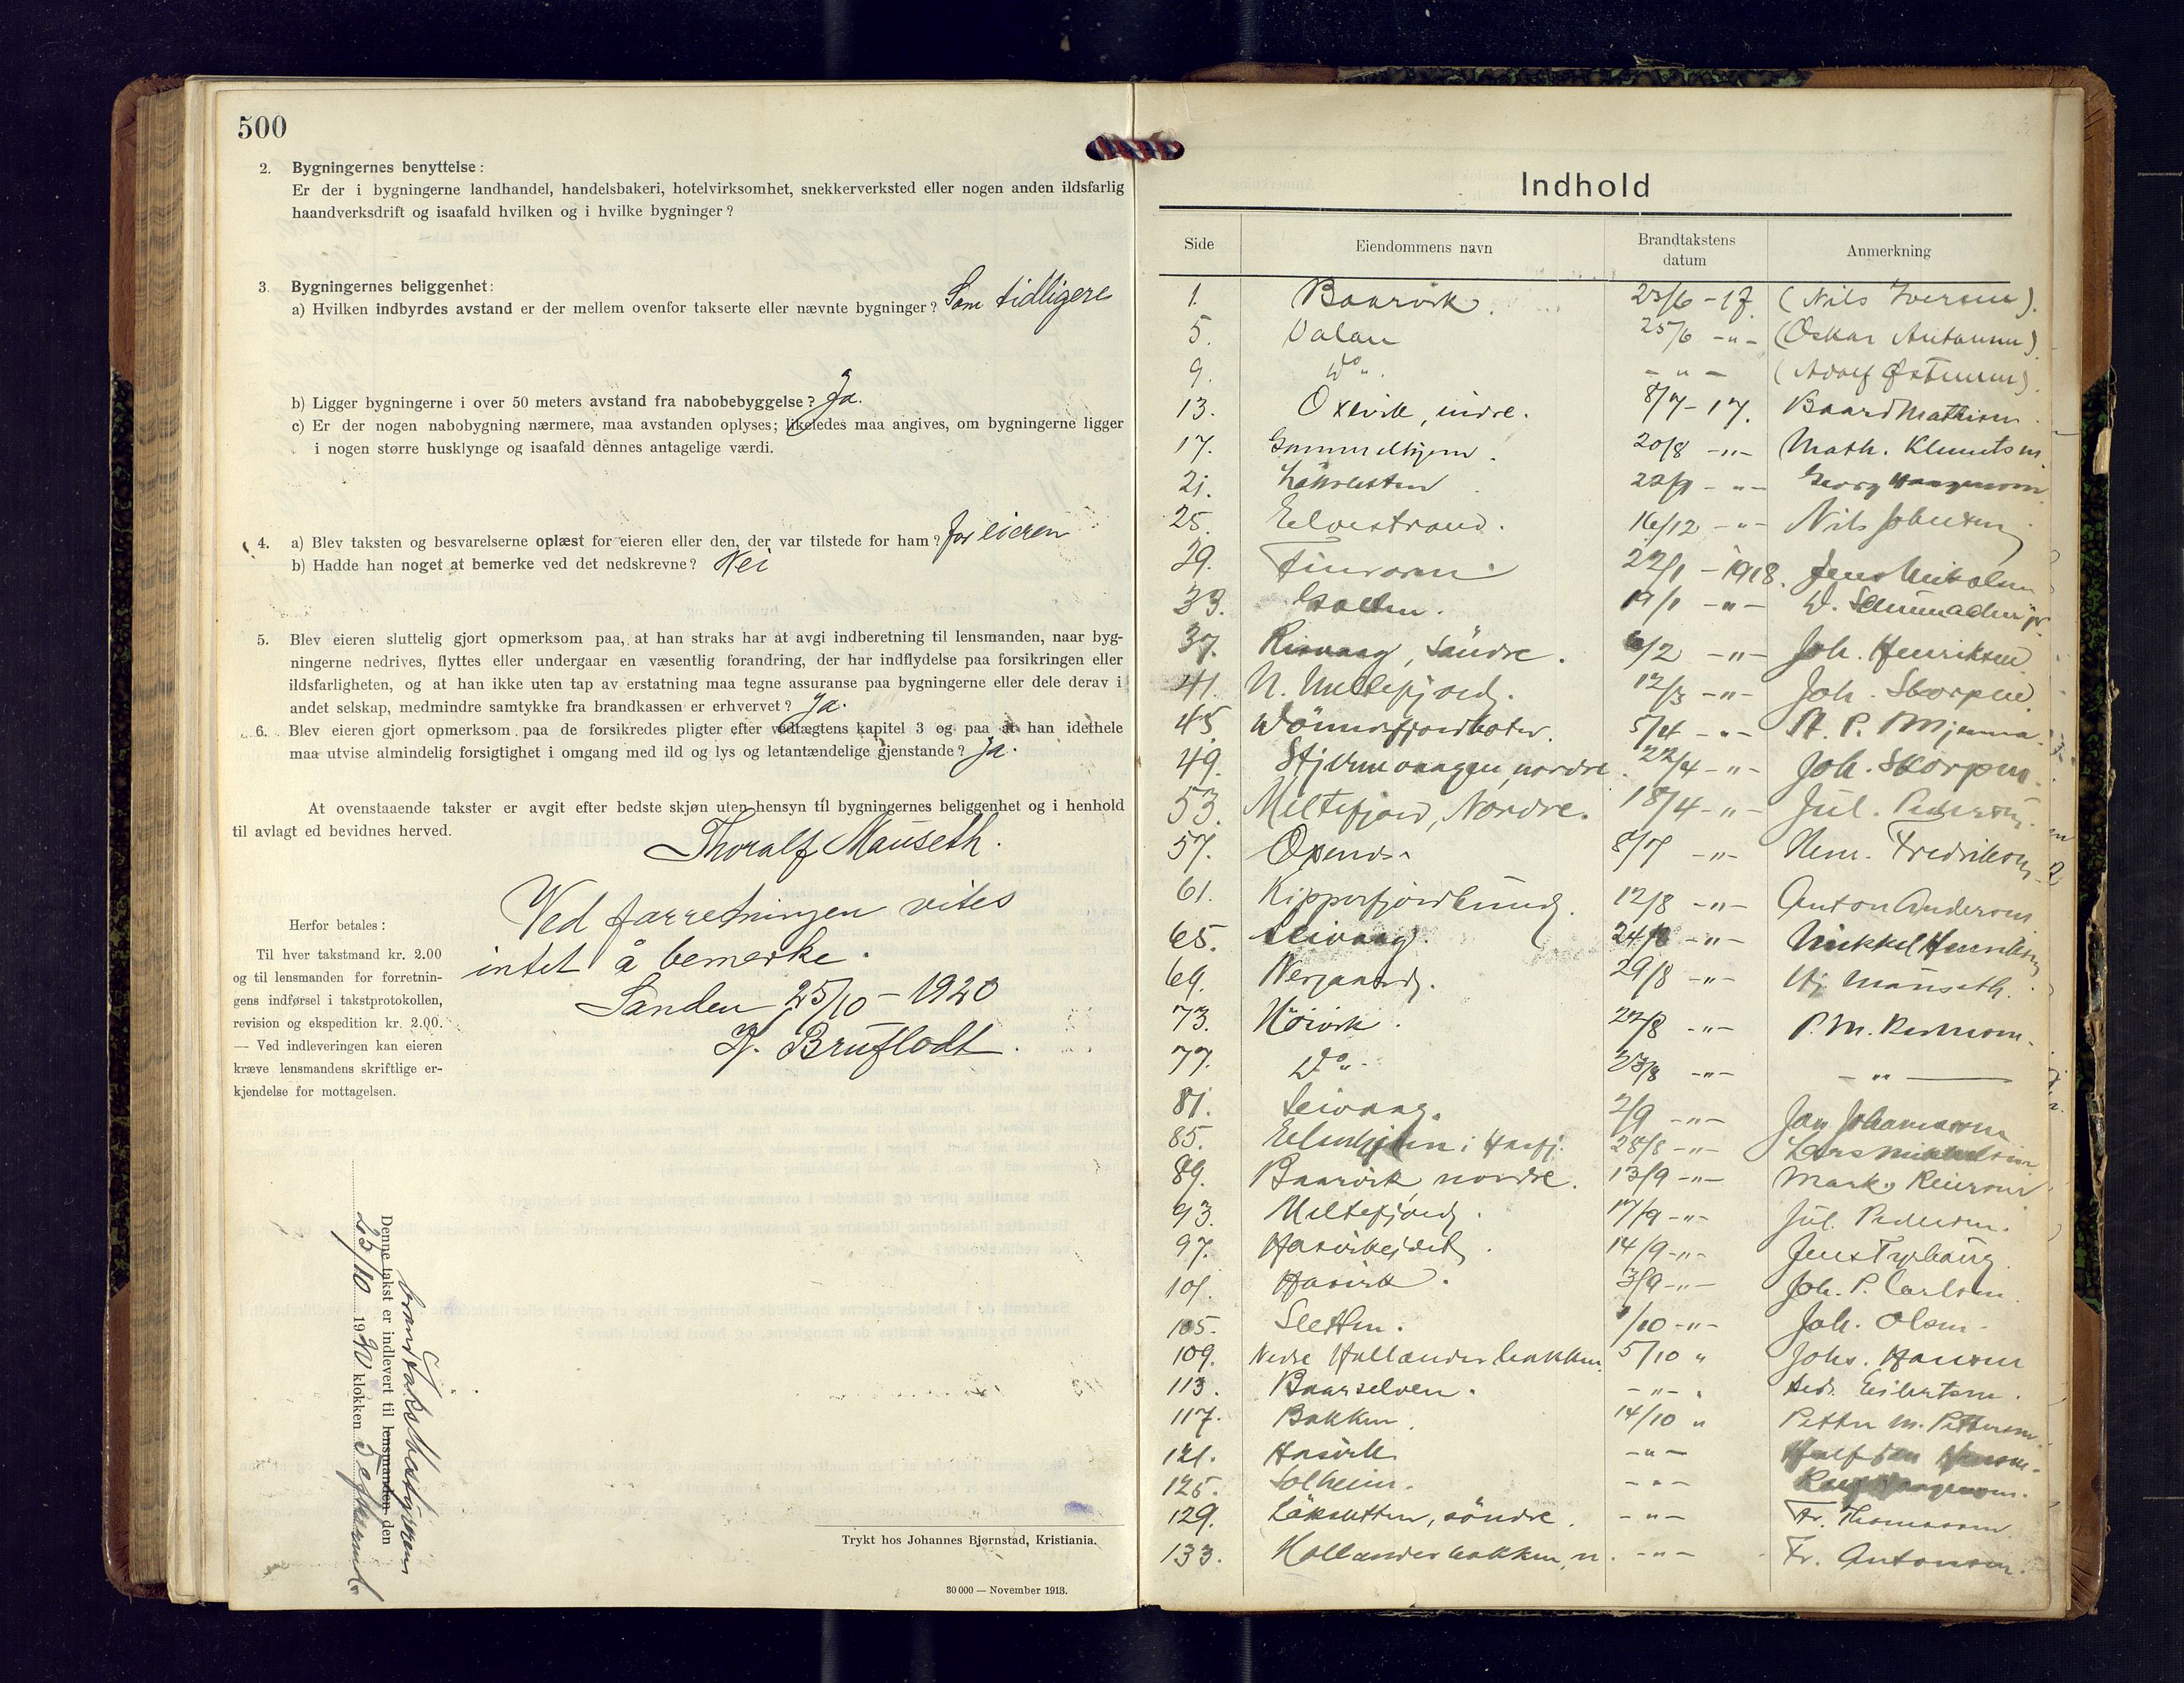 500
2. Bygningernes benyttelse:
Er der i bygningerne landhandel, handelsbakeri, hotelvirksomhet, snekkerverksted eller nogen anden ildsfarlig
haandverksdrift og isaafald hvilken og i hvilke bygninger?
3. Bygningernes beliggenhet:
a) Hvilken indbyrdes avstand er der mellem ovenfor takserte eller nævnte bygninger? Som tidligere
b) Ligger bygningerne i over 50 meters avstand fra nabobebyggelse? Ja.
c) Er der nogen nabobygning nærmere, maa avstanden oplyses; likeledes maa angives, om bygningerne ligger
i nogen større husklynge og isaafald dennes antagelige værdi.
4. a) Blev taksten og besvarelserne oplæst for eieren eller den, der var tilstede for ham? for eieren
b) Hadde han noget at bemerke ved det nedskrevne? Nei
5. Blev eieren sluttelig gjort opmerksom paa, at han straks har at avgi indberetning til lensmanden, naar byg-
ningerne nedrives, flyttes eller undergaar en væsentlig forandring, der har indflydelse paa forsikringen eller
ildsfarligheten, og at han ikke uten tap av erstatning maa tegne assuranse paa bygningerne eller dele derav i
andet selskap, medmindre samtykke fra brandkassen er erhvervet? Ja.
6. Blev eieren gjort opmerksom paa de forsikredes pligter efter vedtægtens kapitel 3 og paa at han idethele
maa utvise almindelig forsigtighet i omgang med ild og lys og letantændelige gjenstande? Ja.
At ovenstaaende takster er avgit efter bedste skjøn uten hensyn til bygningernes beliggenhet og i henhold
til avlagt ed bevidnes herved.
Thoralf Mauseth.
Ved forretningen vites
intet å bemerke.
Sanden 25/10 - 1920
H. Bruflodt.
Herfor betales:
Til hver takstmand kr. 2.00
og til lensmanden for forretnin-
gens indførsel i takstprotokollen,
revision og ekspedition kr. 2.00.
— Ved indleveringen kan eieren
kræve lensmandens skriftlige er-
kjendelse for mottagelsen.
brandtakstbestyreren
Denne takst er indlevert til lensmanden den
25/10 1920 klokken 5 efterm.
Trykt hos Johannes Bjørnstad, Kristiania.
30 000 — November 1913.
Indhold
Side Eiendommens navn Brandtakstens datum Anmerkning
1. Baarvik. 25/6 - 17. (Nils Iversen).
5. Valan 25/6 -"- (Oskar Antonsen)
9. Do". -"- (Adolf Østensen).
13. Oxevik, indre. 8/7 - 17. Baard Mathisen.
17. Gammelhjem. 20/8 -"- Math. Klemetsen
21. -"- Georg
25. Elvestrand. 16/12 -"- Nils Johnsen
29. 22/1 - 1918. Jens Mikalsen
33. 19/1 -"- W. Schumacher jr.
37. Risvaag, søndre. 6/2 -"- Joh. Henriksen
41. N. Meltefjord. 12/3 -"- Joh. Skorpen
45. Dønnesfjordbotn. 5/4 -"-
49. Stjernevaagen, nordre. 22/4 -"- Joh. Skorpen
53. Meltefjord, Nordre. 18/4 -"- Jul. Pedersen.
57. 8/7 -"- Hem. Fredriksen
61. Kipparfjordbund. 12/8 -"- Anton Andersen
65. Seivaag. 24/8 -"- Mikkel Henriksen
69. Nergaard. 29/8 -"- Hj. Mauseth.
73. Høivik. 22/8 -"- P. M.
77. Do". 23/8 -"- -"-
81. Seivaag. 2/9 -"- Jan Johannesen
85. i Hasfj. 28/8 -"- Lars
89. Baarvik, nordre. 13/9 -"- Mark. Reiersen
93. Meltefjord. 17/9 -"- Jul. Pedersen.
97. Hasvikeidet. 14/9 -"- Jens Tyrhaug.
101. Hasvik. 3/9 -"- Joh. P. Carlsen.
105. Sletten. 1/10 -"- Joh. Olsen.
109. Nedre Hollænderbakken. 5/10 " Johs. Hansen
113. Baarselven. -"- Eilertsen.
117. Bakken. 14/10 " Petter M. Pettersen.
121. Hasvik -"- Halfdan
125. Solheim. -"-
129. søndre. -"- Fr. Thomassen
133. Hollænderbakken, n. -"- Fr. Antonsen.